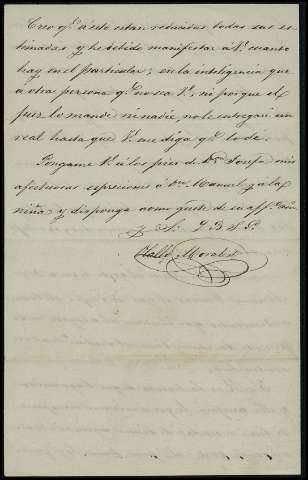 Creo qe. á esto estan reducidas todas sus es-
timadas y he debido manifestar á V. cuanto
hay en el particular; en la inteligencia que
á otra persona qe. no sea V., ni porque el
juez lo mande ni nadie, no le entregaré un
real hasta que V. me diga qe. lo dé.
Pongame V. á los pies de Da. Josefa mis
afectuosas espresiones á Dn. Manuel y á la
niña y disponga como guste de su affmo.
y S. Q B S P.
Morales